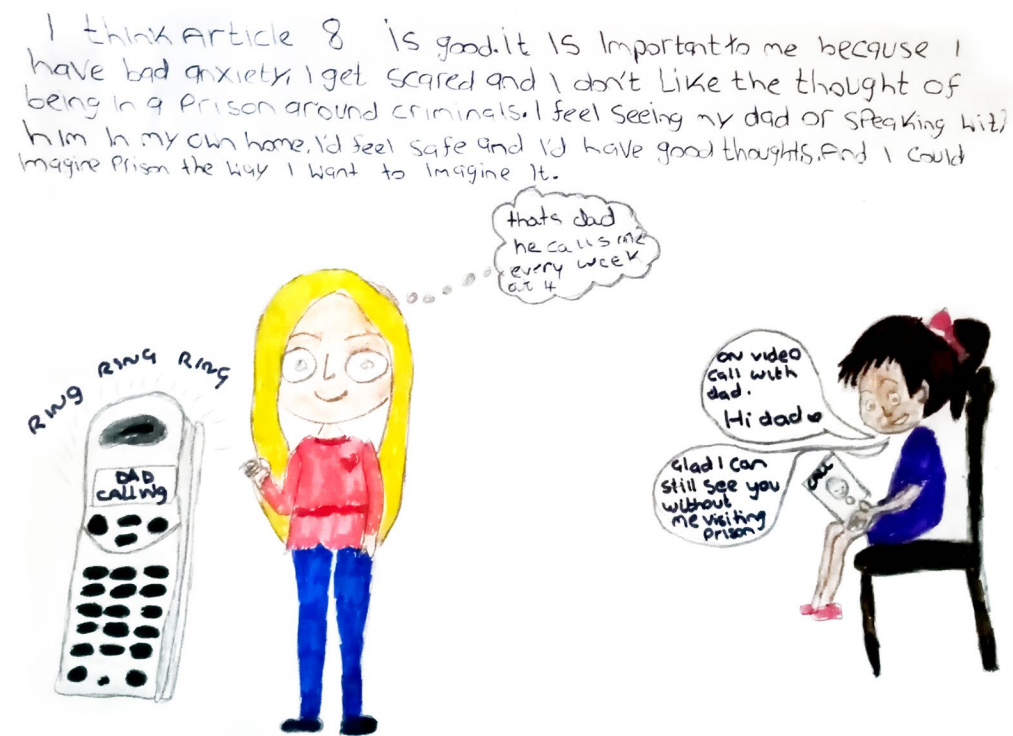 I think Article 8 is good. it is important to me because I
have bad anxiety, I get scared and I don't like the thought of
being in a prison around criminals. I feel seeing my dad or speaking with
him in my own home, I'd feel safe and I'd have good thoughts. And I could
imagine prison the way I want to imagine it.
thats dad
he calls me
every week
at 4
RING RING RING
DAD
CALLING
on video
call with
dad.
Hi dad
Glad I can
still see you
without
me visiting
prison